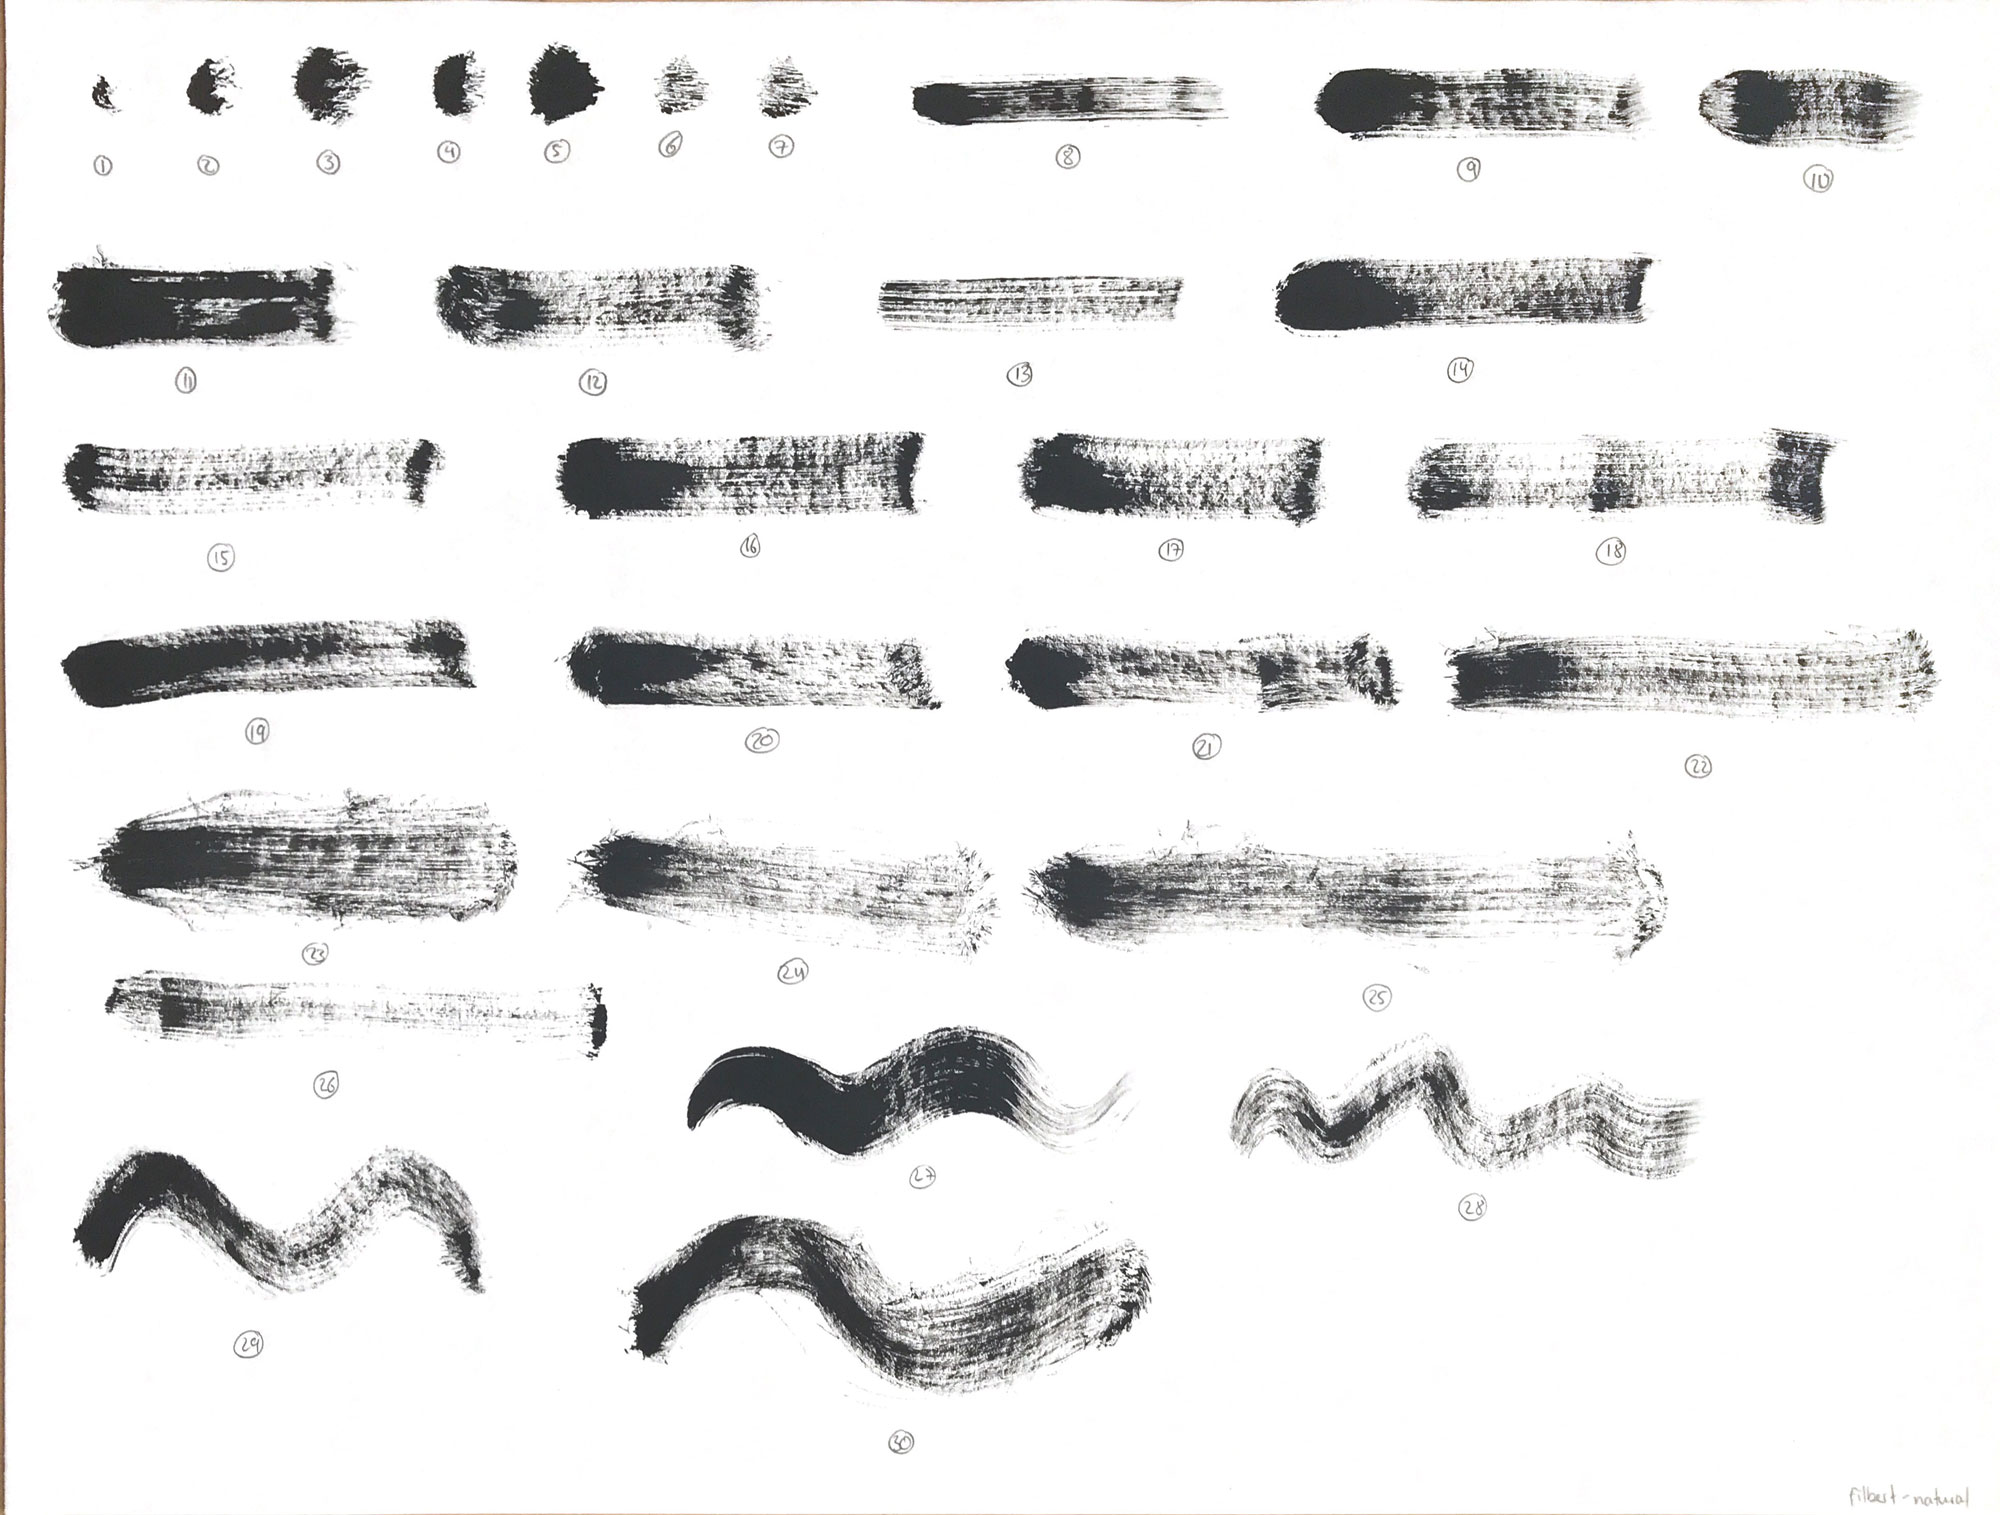 1 2 3 4 5 6 7 8 9 10
11 12 13 14
15 16 17 18
19 20 21 22
23 24 25
26 27 28
29 30
Filbert-natural